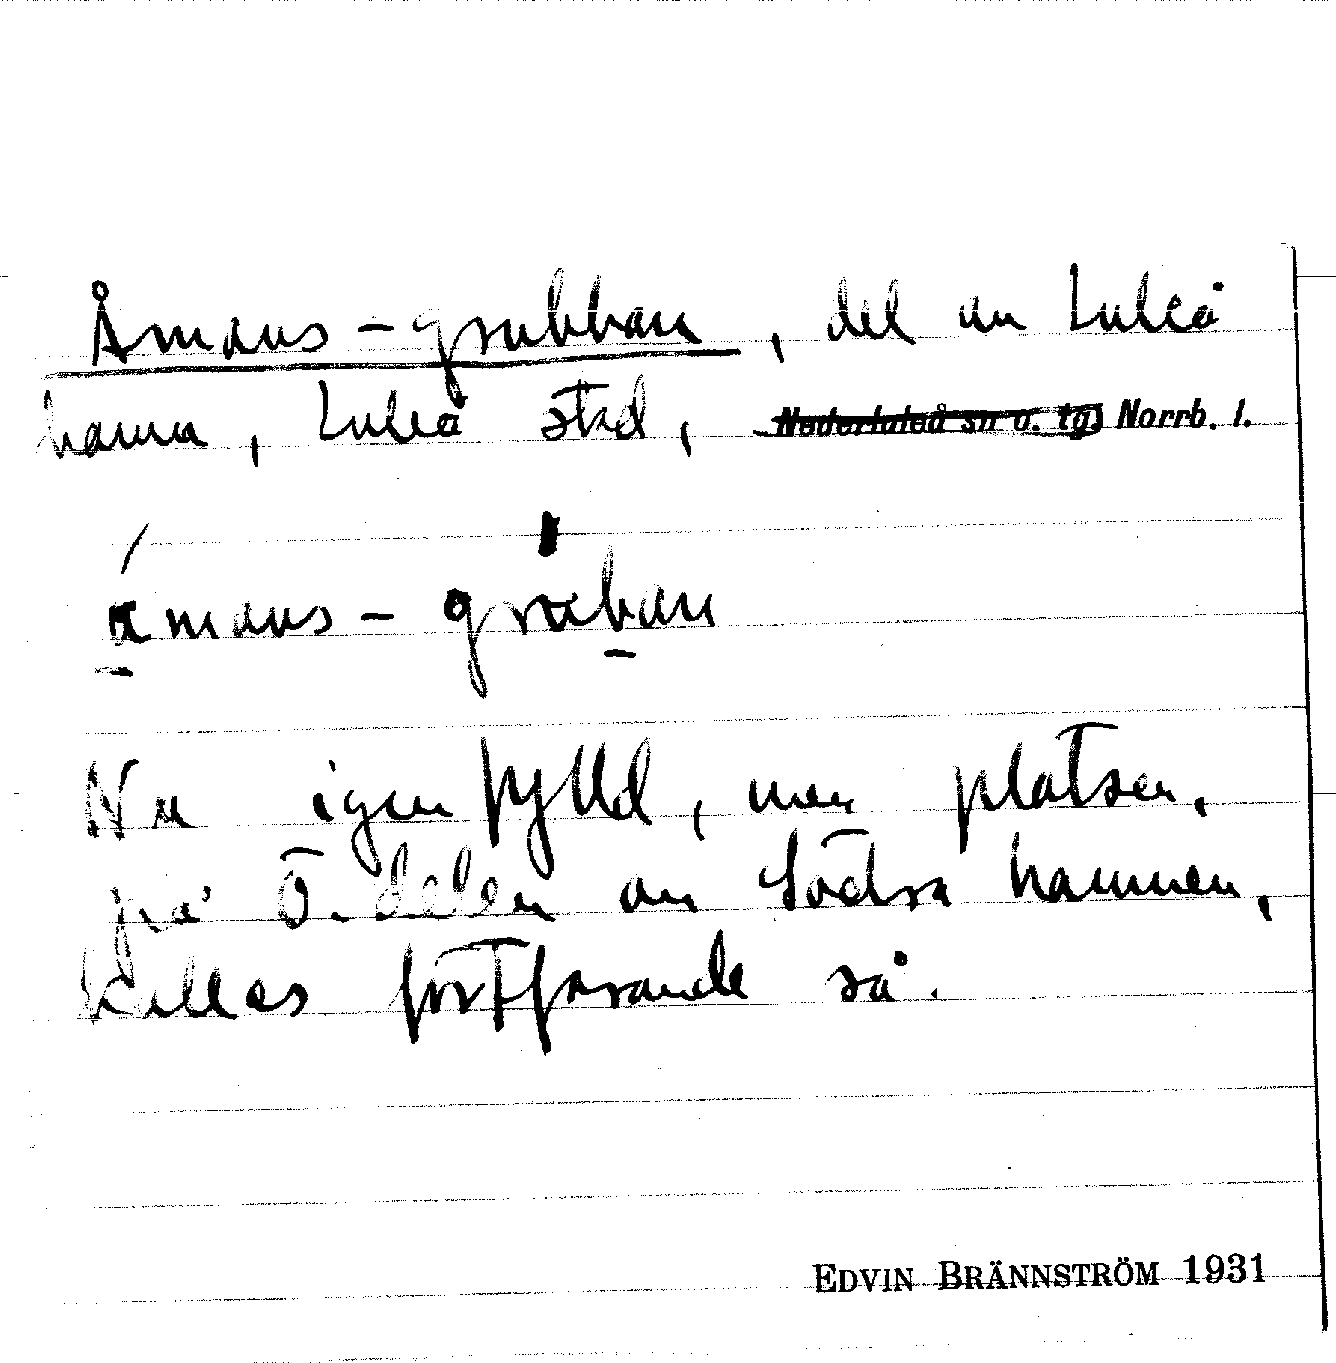 Åmans-grubban, del av Luleå
hamn, Luleå stad, Nederluleå sn o. tg. Norrb. l.
åmans-gruban
Nu igenfylld, men platsen,
på ö. delen av Södra hamnen,
kallas fortfarande så.
EDVIN BRÄNNSTRÖM 1931